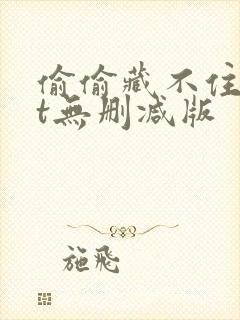 偷偷藏不住
t無删减版
施飛